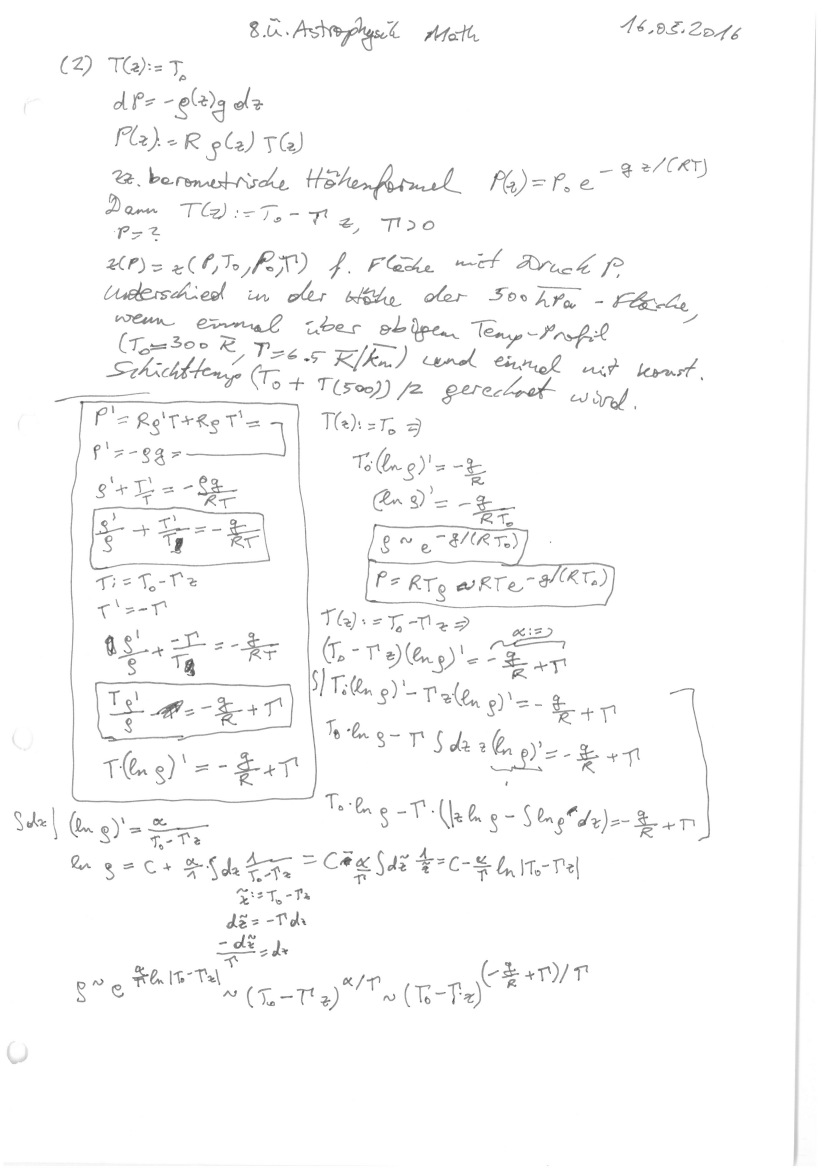 8.Ü. Astrophysik Math 16.03.2016
(2) T(z):=T₀
dP=-ρ(z)g dz
P(z):=R ρ(z) T(z)
zz. barometrische Höhenformel P(z)=P₀ e^{-g z/(RT)}
Dann T(z):=T₀-Γ z, Γ>0
P=?
z(P)=z(P,T₀,P₀,Γ) f. Fläche mit Druck P.
Unterschied in der Höhe der 500 hPa-Fläche,
wenn einmal über obigem Temp-Profil
(T₀=300 K, Γ=6.5 K/km) und einmal mit konst.
Schichttemp (T₀+T(500))/2 gerechnet wird.
P'=Rρ'T+RρT'=
P'=-ρg=
ρ'+T'/T=-ρg/RT
ρ'/ρ+T'/T=-g/RT
T:=T₀-Γz
T'=-Γ
ρ'/ρ+-Γ/T=-g/RT
Tρ'/ρ=-g/R+Γ
T·(ln ρ)'=-g/R+Γ
T(z):=T₀⇒
T₀(ln ρ)'=-g/R
(ln ρ)'=-g/RT₀
ρ~e^{-g/(RT₀)}
P=RTρ~RTe^{-g/(RT₀)}
T(z):=T₀-Γz⇒
α:=
(T₀-Γz)(ln ρ)'=-g/R+Γ
∫| T₀(ln ρ)'-Γz(ln ρ)'=-g/R+Γ
T₀·ln ρ-Γ∫dz z(ln ρ)'=-g/R+Γ
T₀·ln ρ-Γ·(|z ln ρ-∫ln ρ dz)=-g/R+Γ
∫dz| (ln ρ)'=α/(T₀-Γz)
ln ρ=C+α/1·∫dz 1/(T₀-Γz)=C-α/Γ∫dz̃ 1/z̃=C-α/Γ ln|T₀-Γz|
z̃:=T₀-Γz
dz̃=-Γdz
-dz̃/Γ=dz
ρ~e^{α/Γ ln|T₀-Γz|}~(T₀-Γz)^{α/Γ}~(T₀-Γz)^{(-g/R+Γ)/Γ}